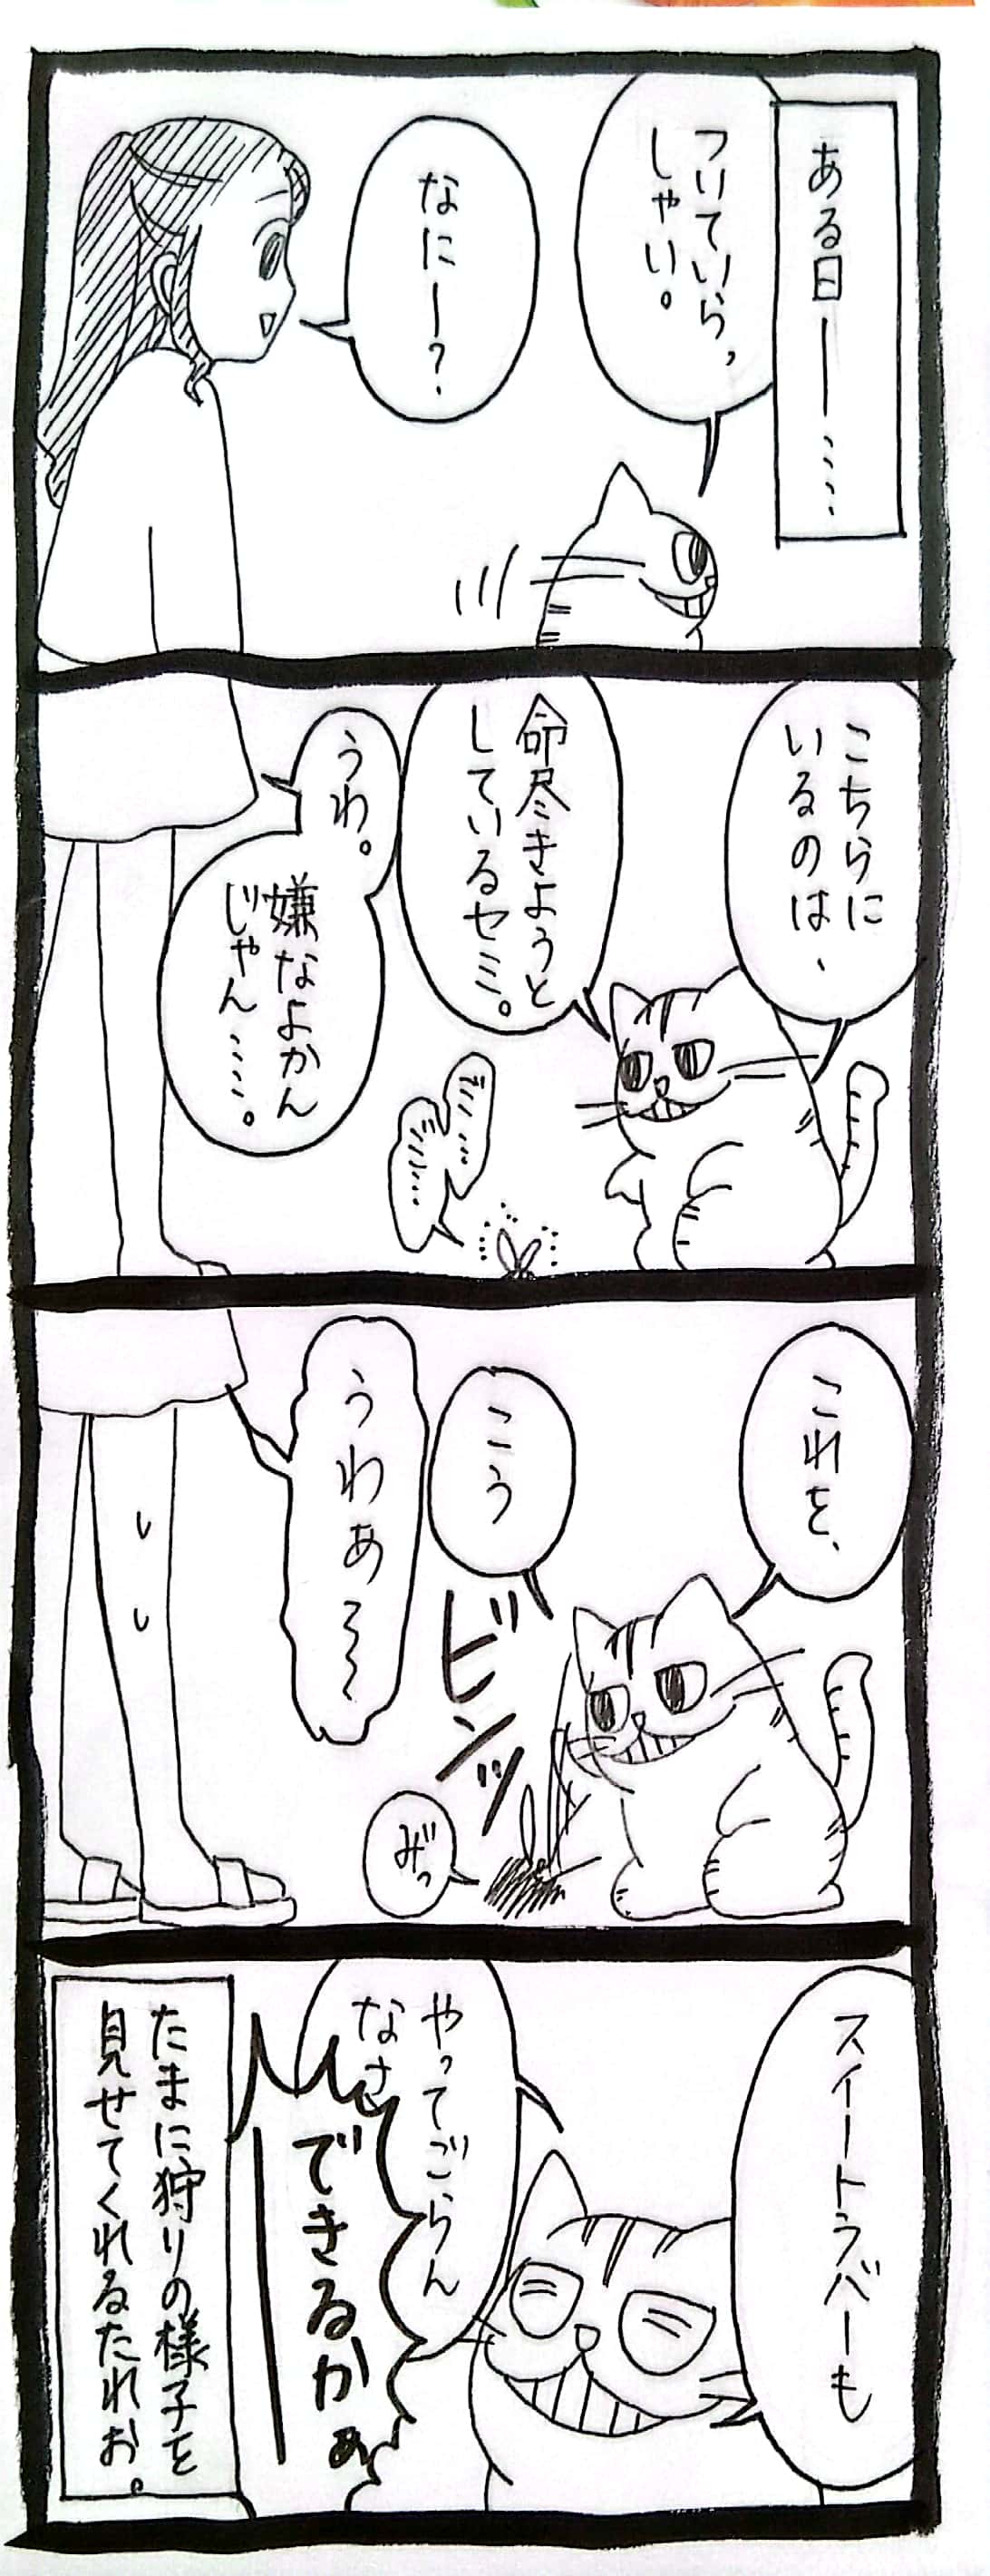 ある日――……
ついていらっ
しゃい。
なにー？
こちらに
いるのは、
命尽きようと
しているセミ。
うわ。
嫌なよかん
じゃん……。
ジジ…
ジジ…
これを、
こう
ビシッ
み゛っ
うわぁ～～
スイートラバーも
やってごらん
なさい
できるかぁ
たまに狩りの様子を
見せてくれるたれお。